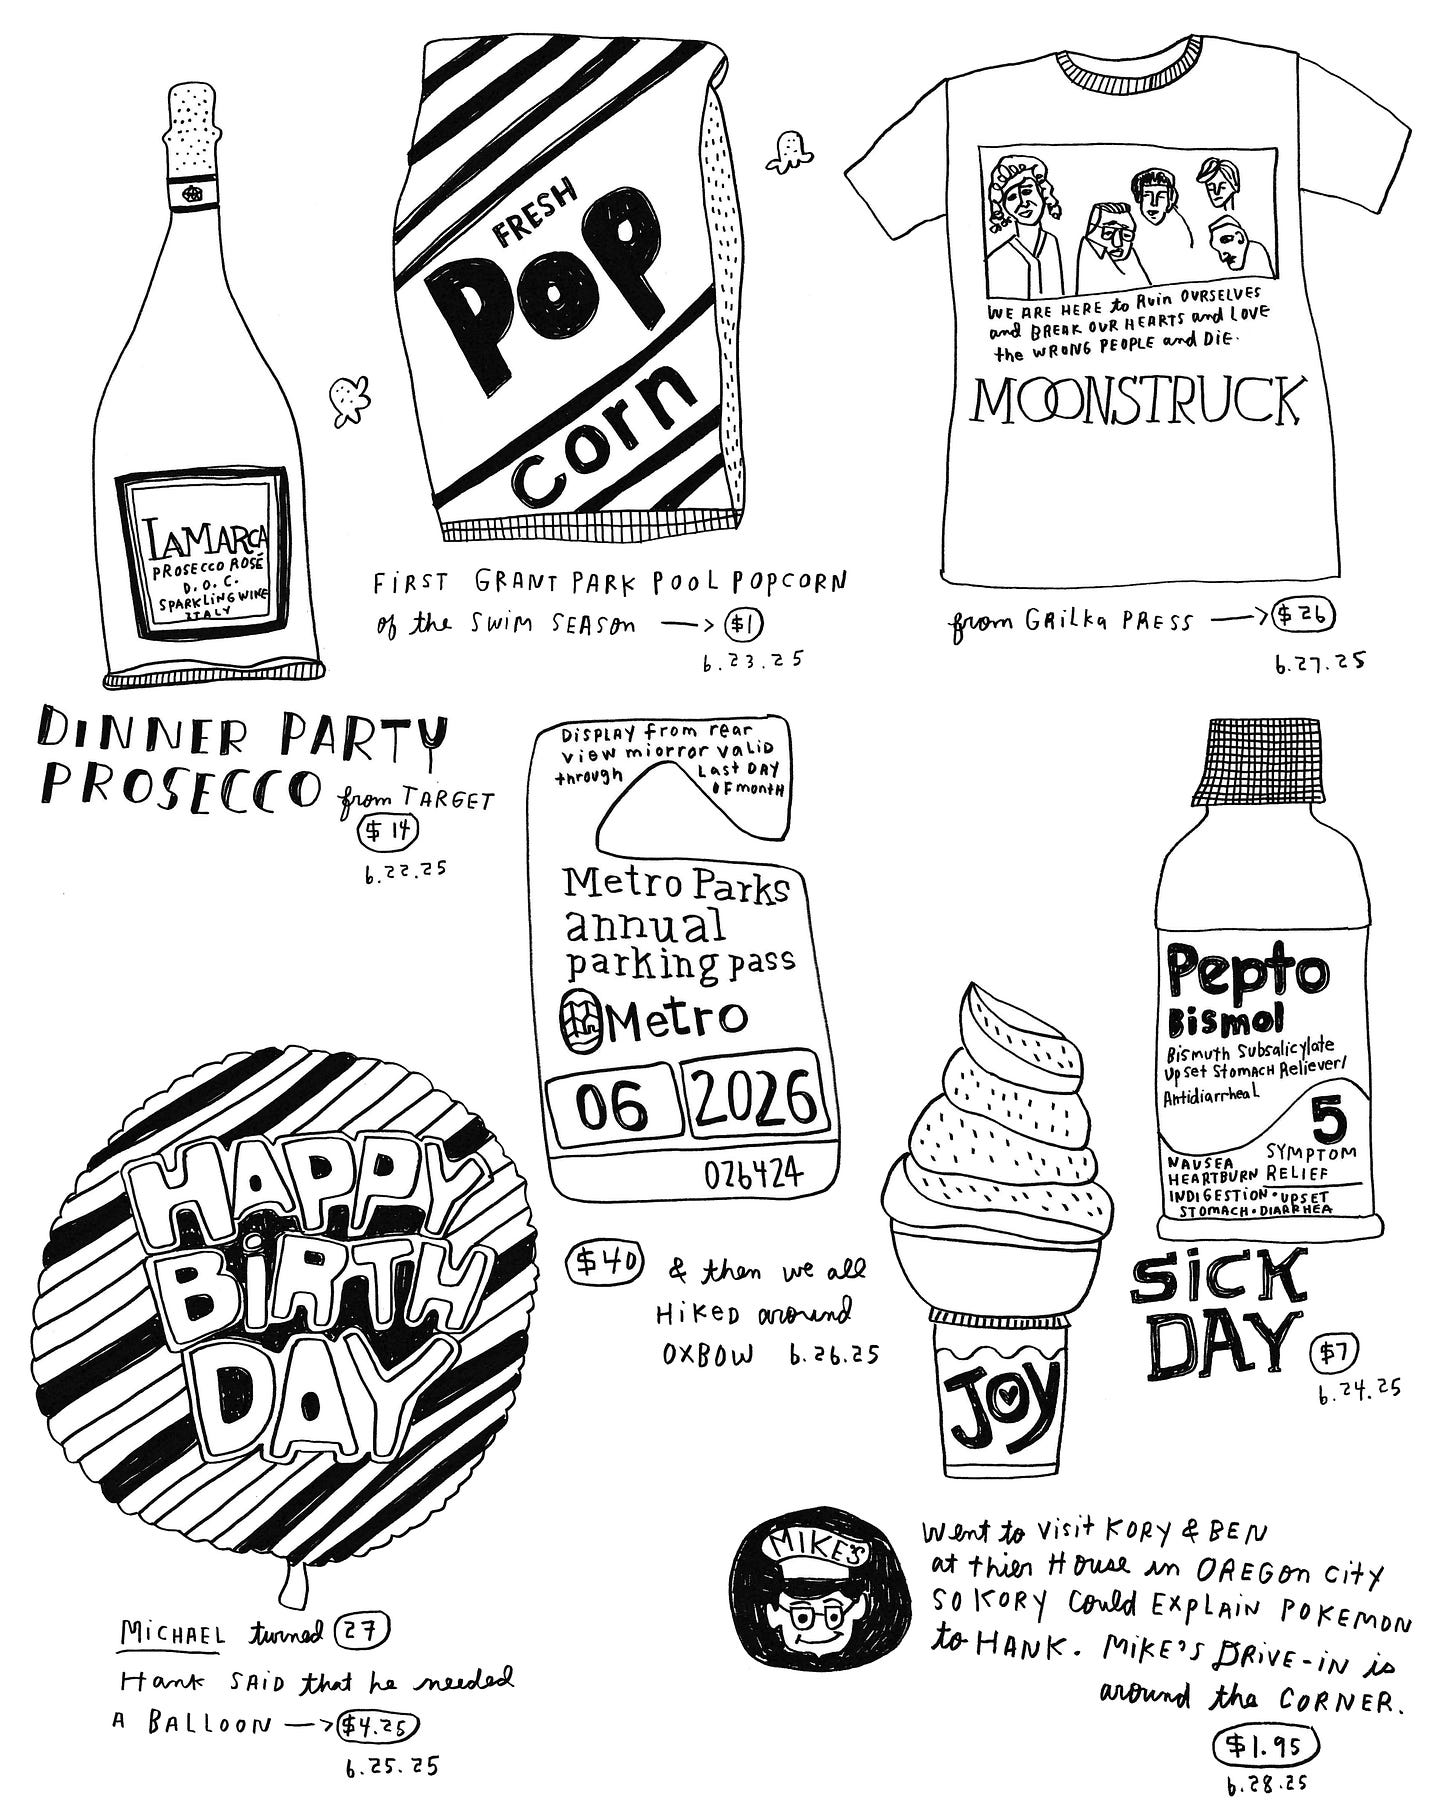 LAMARCA
PROSECCO ROSÉ
D.O.C.
SPARKLING WINE
ITALY
DINNER PARTY
PROSECCO from TARGET
$14
6.22.25
FRESH
POP
corn
FIRST GRANT PARK POOL POPCORN
of the SWIM SEASON —> $1
6.23.25
WE ARE HERE to Ruin OURSELVES
and BREAK OUR HEARTS and LOVE
the WRONG PEOPLE and DIE.
MOONSTRUCK
from GRilka PRESS —> $26
6.27.25
DISPLAY from rear
view miorror valid
through Last DAY
OF month
Metro Parks
annual
parking pass
Metro
06 2026
026424
$40 & then we all
HIKED around
OXBOW 6.26.25
Pepto
Bismol
Bismuth Subsalicylate
Upset Stomach Reliever/
Antidiarrheal
5
SYMPTOM
RELIEF
NAUSEA
HEARTBURN
INDIGESTION • UPSET
STOMACH • DIARRHEA
SICK
DAY $7
6.24.25
HAPPY
BIRTH
DAY
MICHAEL turned 27
Hank SAID that he needed
A BALLOON —> $4.25
6.25.25
JOY
MIKE'S
Went to visit KORY & BEN
at thier House in OREGON CITY
SO KORY Could EXPLAIN POKEMON
to HANK. MIKE'S DRIVE-IN is
around the CORNER.
$1.95
6.28.25